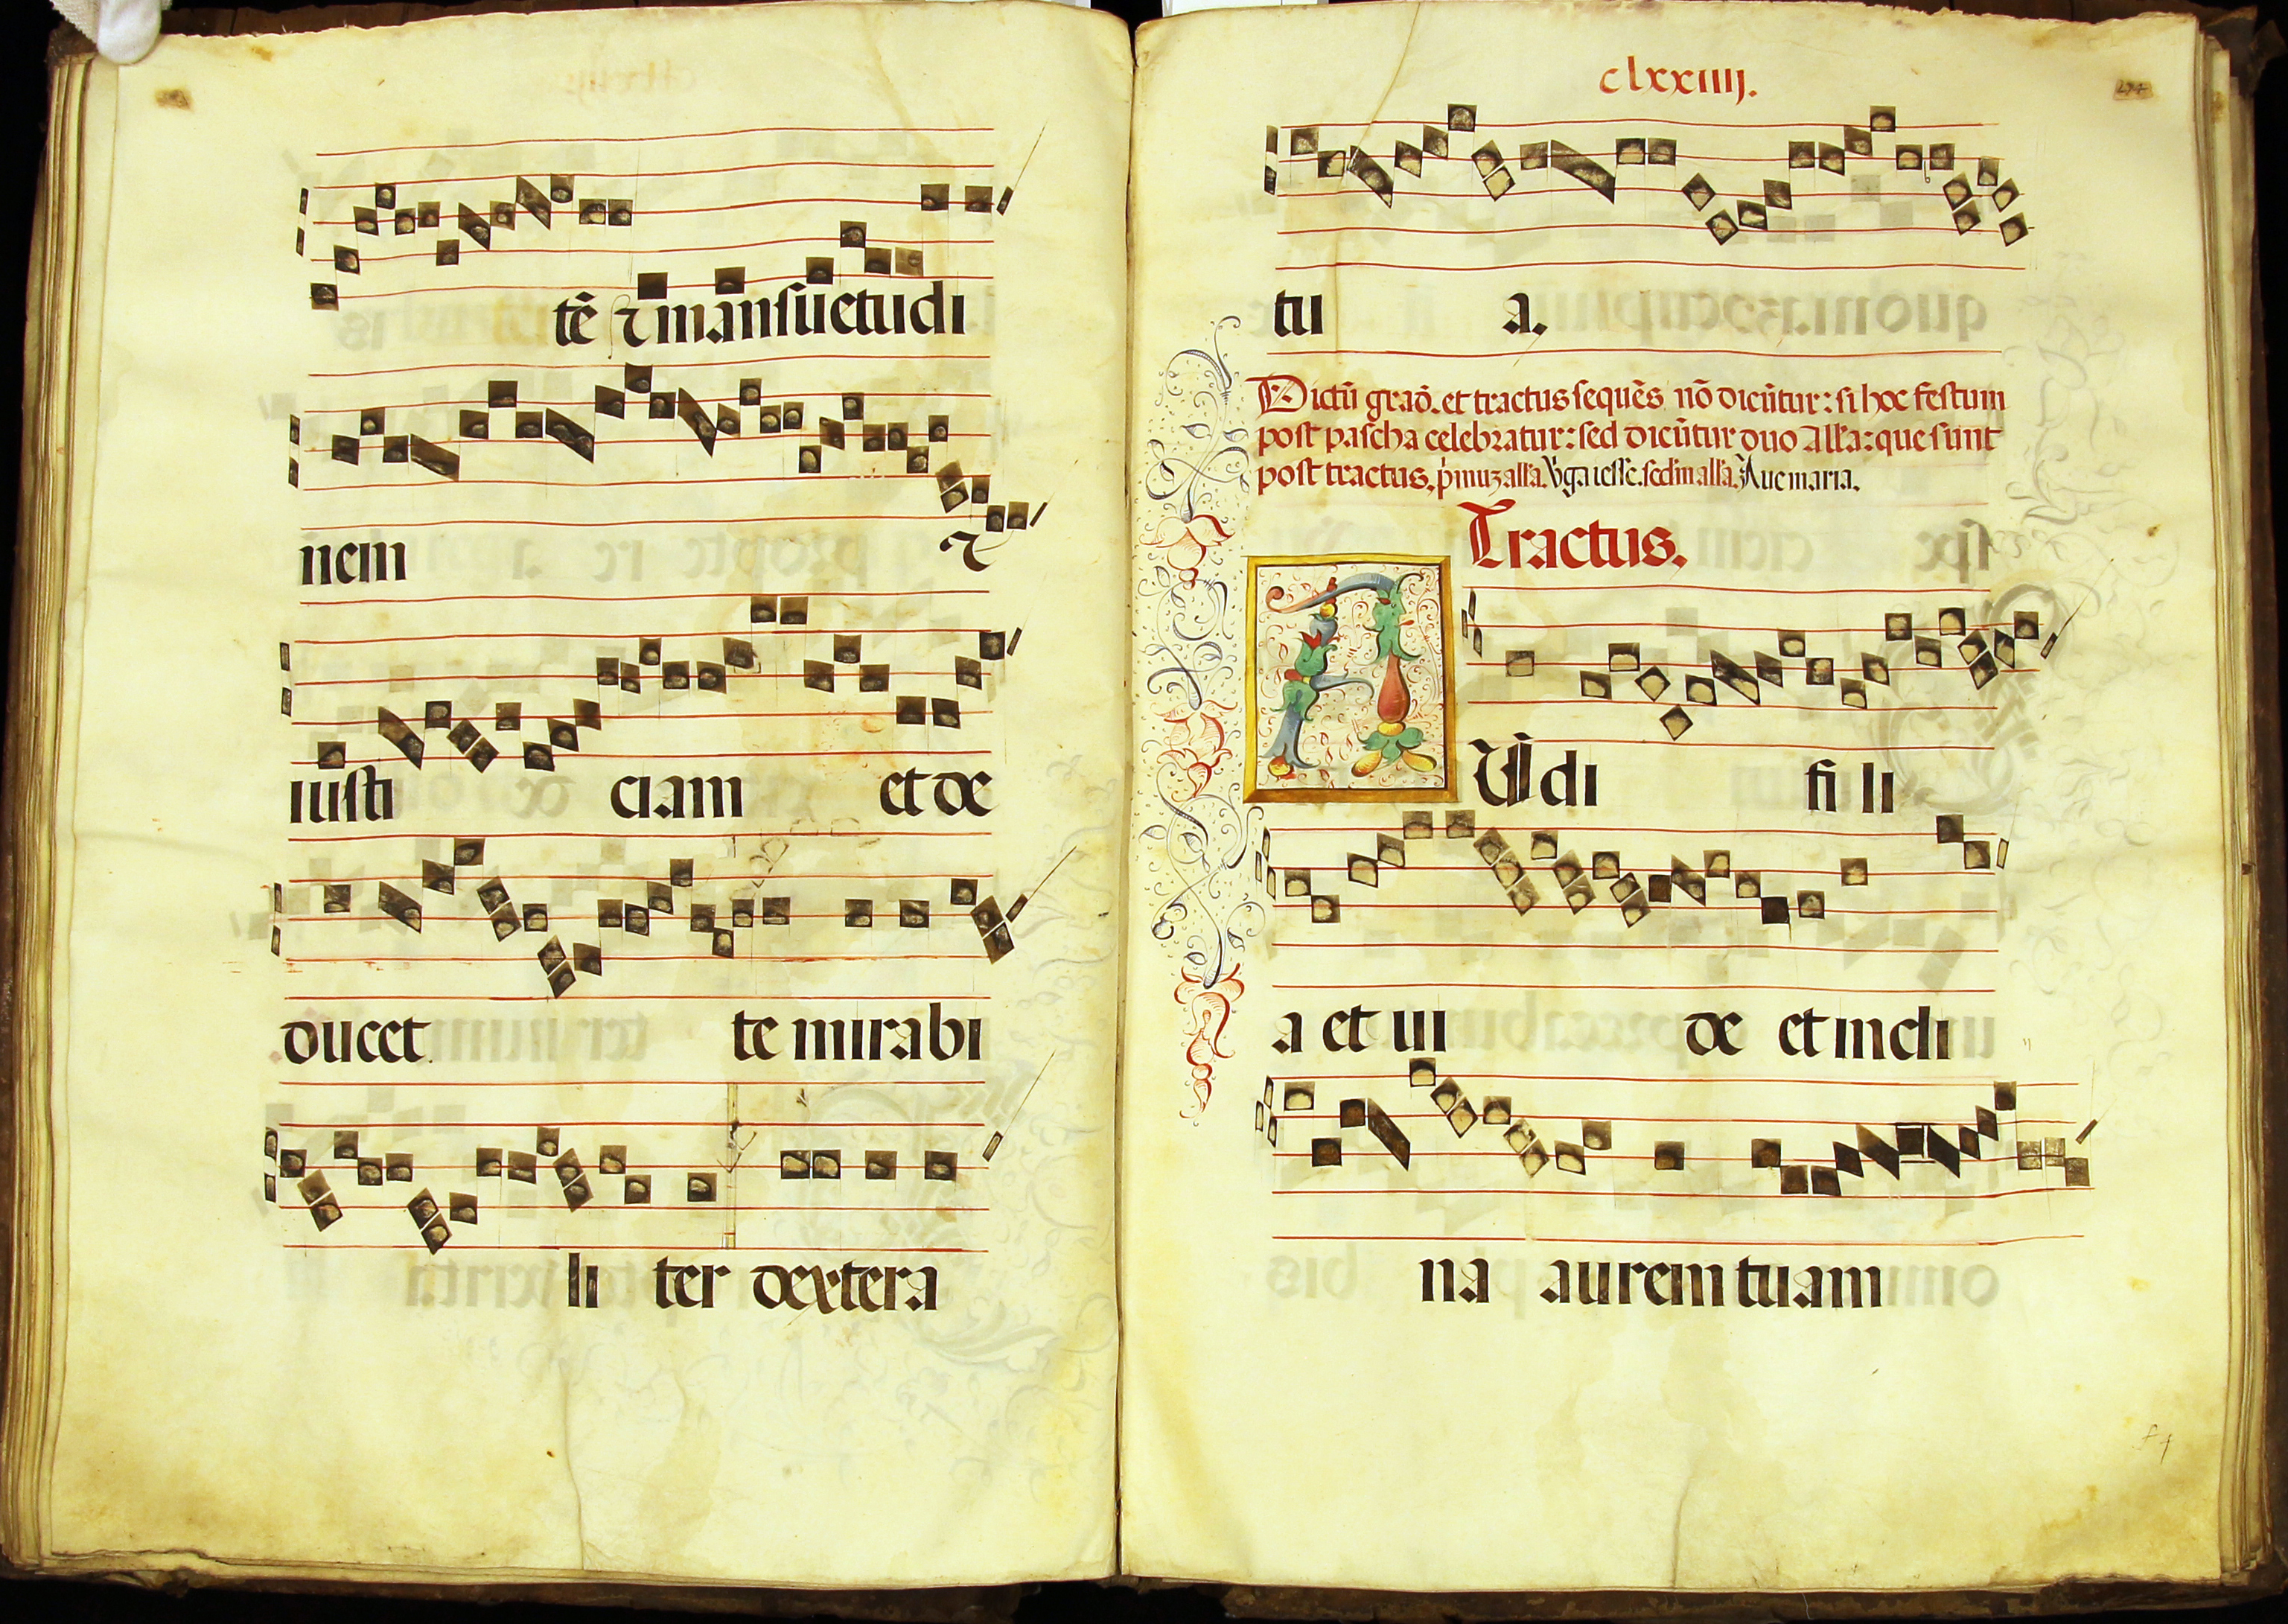 tē ⁊ mansuetudi
nem ⁊
iusti ciam et de
ducet te mirabi
li ter dextera
clxxiiij.
tu a.
Dictū graō. et tractus sequēs nō dicūtur: si hoc festum
post pascha celebratur: sed dicūtur duo Alla: que sunt
post tractus. pͥmuz alla. Vͥga iesse. sedm alla. Aue maria.
Tractus.
AUdi fi li
a et ui de et incli
na aurem tuam